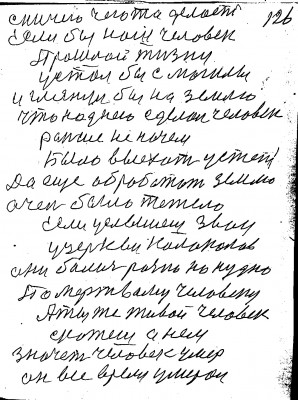 с ничего чегота делоеть 126
Если бы наш человек
Прошлой жизни
устал бы с могилы
и глянул бы на землю
что на днего сделал человек
раньше не начем
было выехоть устепь
Да еще обработот землю
очен было тежело
Если услышеш звон
у церкви Колоколов
они бальш разно по нудно
По мертвому человеку
Ятуже живой человек
скажеш о нем
значет человек умер
он все время умирал